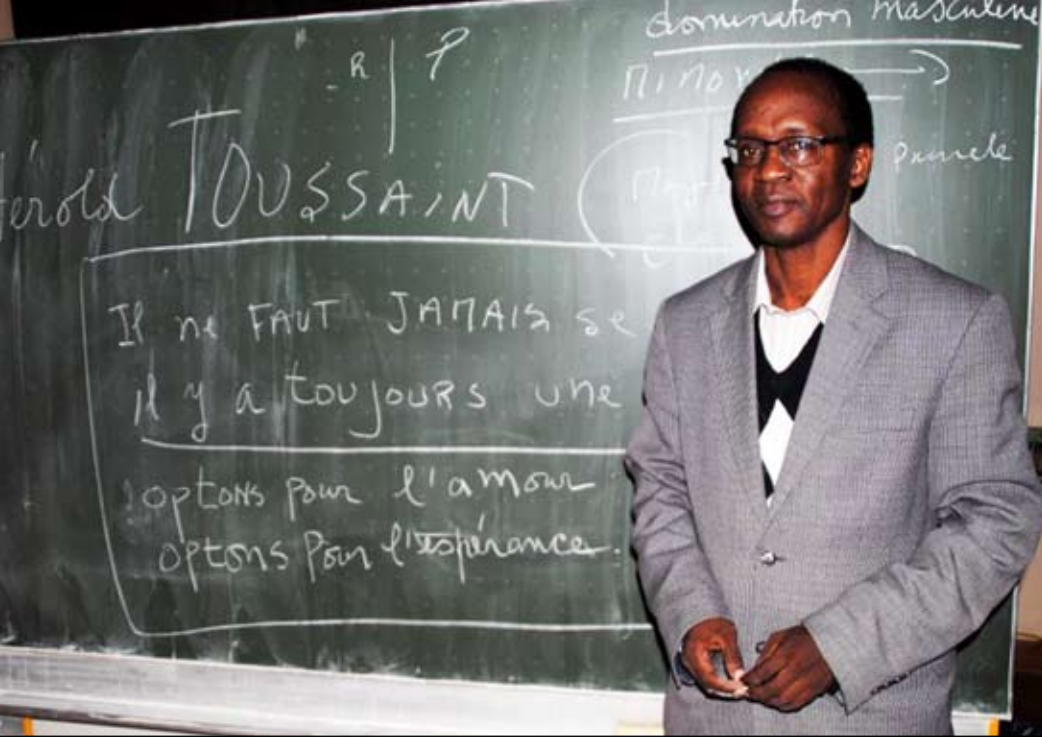 domination masculine
R P
Hérold TOUSSAINT
Il ne FAUT JAMAIS se
il y a toujours une
optons pour l'amour
optons pour l'espérance.